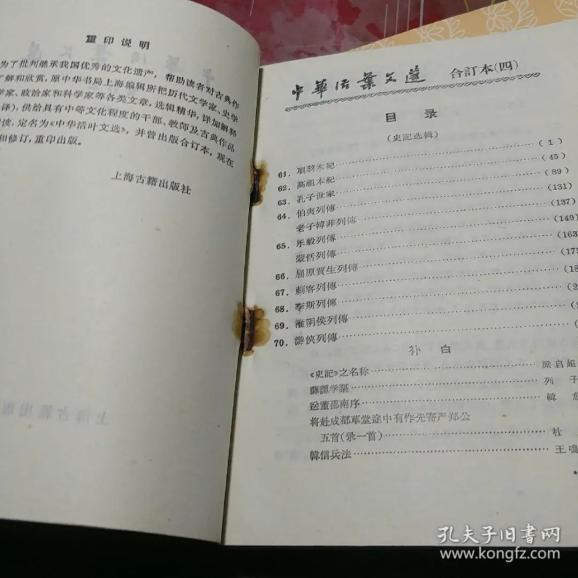 重印说明
为了批判继承我国优秀的文化遗产，帮助读者对古典作
了解和欣赏，原中华书局上海编辑所把历代文学家、史学
学家、政治家和科学家等各类文章，选辑精华，详加解释
译)，供给具有中等文化程度的干部、教师及古典作品
读，定名为《中华活叶文选》，并曾出版合订本，现在
和修订，重印出版。
上海古籍出版社
中華活葉文選 合訂本(四)
目录
(史記选輯)
61. 項羽本紀 (1)
62. 高祖本紀 (45)
63. 孔子世家 (89)
64. 伯夷列傳 (131)
老子韓非列傳 (137)
65. 乐毅列傳 (149)
蒙恬列傳 (163
66. 屈原賈生列傳 (17
67. 刺客列傳
68. 李斯列傳 (2
69. 淮阴侯列傳
70. 游俠列傳
补白
《史記》之名称 梁启超
薛譚学謳 列子
送董邵南序 韓愈
将赴成都草堂途中有作先寄严郑公
五首(录一首) 杜
韓信兵法 王鳴
孔夫子旧书网
www.kongfz.com